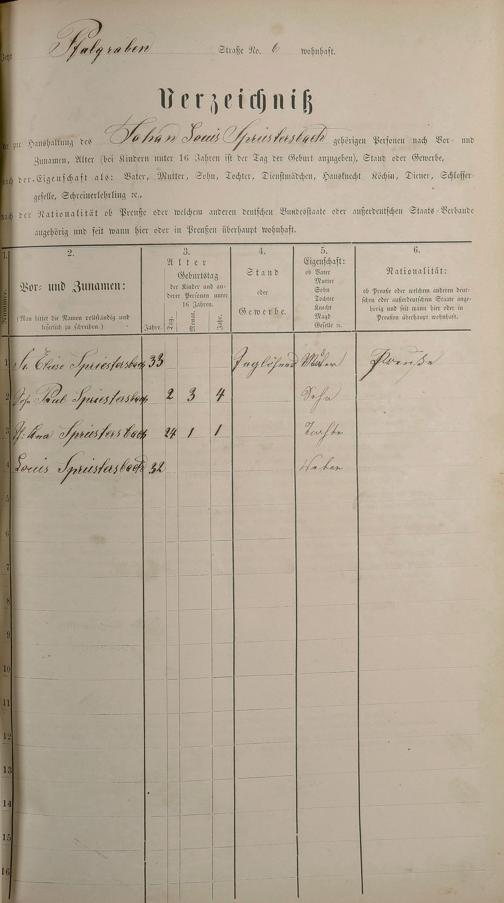 Pfalgraben Straße No. 6 wohnhaft.
Verzeichniß
zur Haushaltung des Johan Louis Spriestersbach gehörigen Personen nach Vor- und
Zunamen, Alter (bei Kindern unter 16 Jahren ist der Tag der Geburt anzugeben), Stand oder Gewerbe,
nach der Eigenschaft als: Vater, Mutter, Sohn, Tochter, Dienstmädchen, Hausknecht Köchin, Diener, Schlosser-
geselle, Schreinerlehrling ec.,
nach der Nationalität ob Preuße oder welchem anderen deutschen Bundesstaate oder außerdeutschen Staats-Verbande
angehörig und seit wann hier oder in Preußen überhaupt wohnhaft.
1. 2. 3. 4. 5. 6.
Nummer.
Vor- und Zunamen:
(Man bittet die Namen vollständig und
leserlich zu schreiben.)
Alter
Geburtstag
der Kinder und an-
derer Personen unter
16 Jahren.
Jahre. Tag. Monat. Jahr.
Stand
oder
Gewerbe.
Eigenschaft:
ob Vater
Mutter
Sohn
Tochter
Knecht
Magd
Geselle ec.
Nationalität:
ob Preuße oder welchem anderen deut-
schen oder außerdeutschen Staate ange-
hörig und seit wann hier oder in
Preußen überhaupt wohnhaft.
1 Elise Spriestersbach 33 Preuße
2 Paul Spriestersbach 2 3 4 Sohn
3 Lina Spriestersbach 24 1 1 Tochter
4 Louis Spriestersbach 32
5
6
7
8
9
10
11
12
13
14
15
16